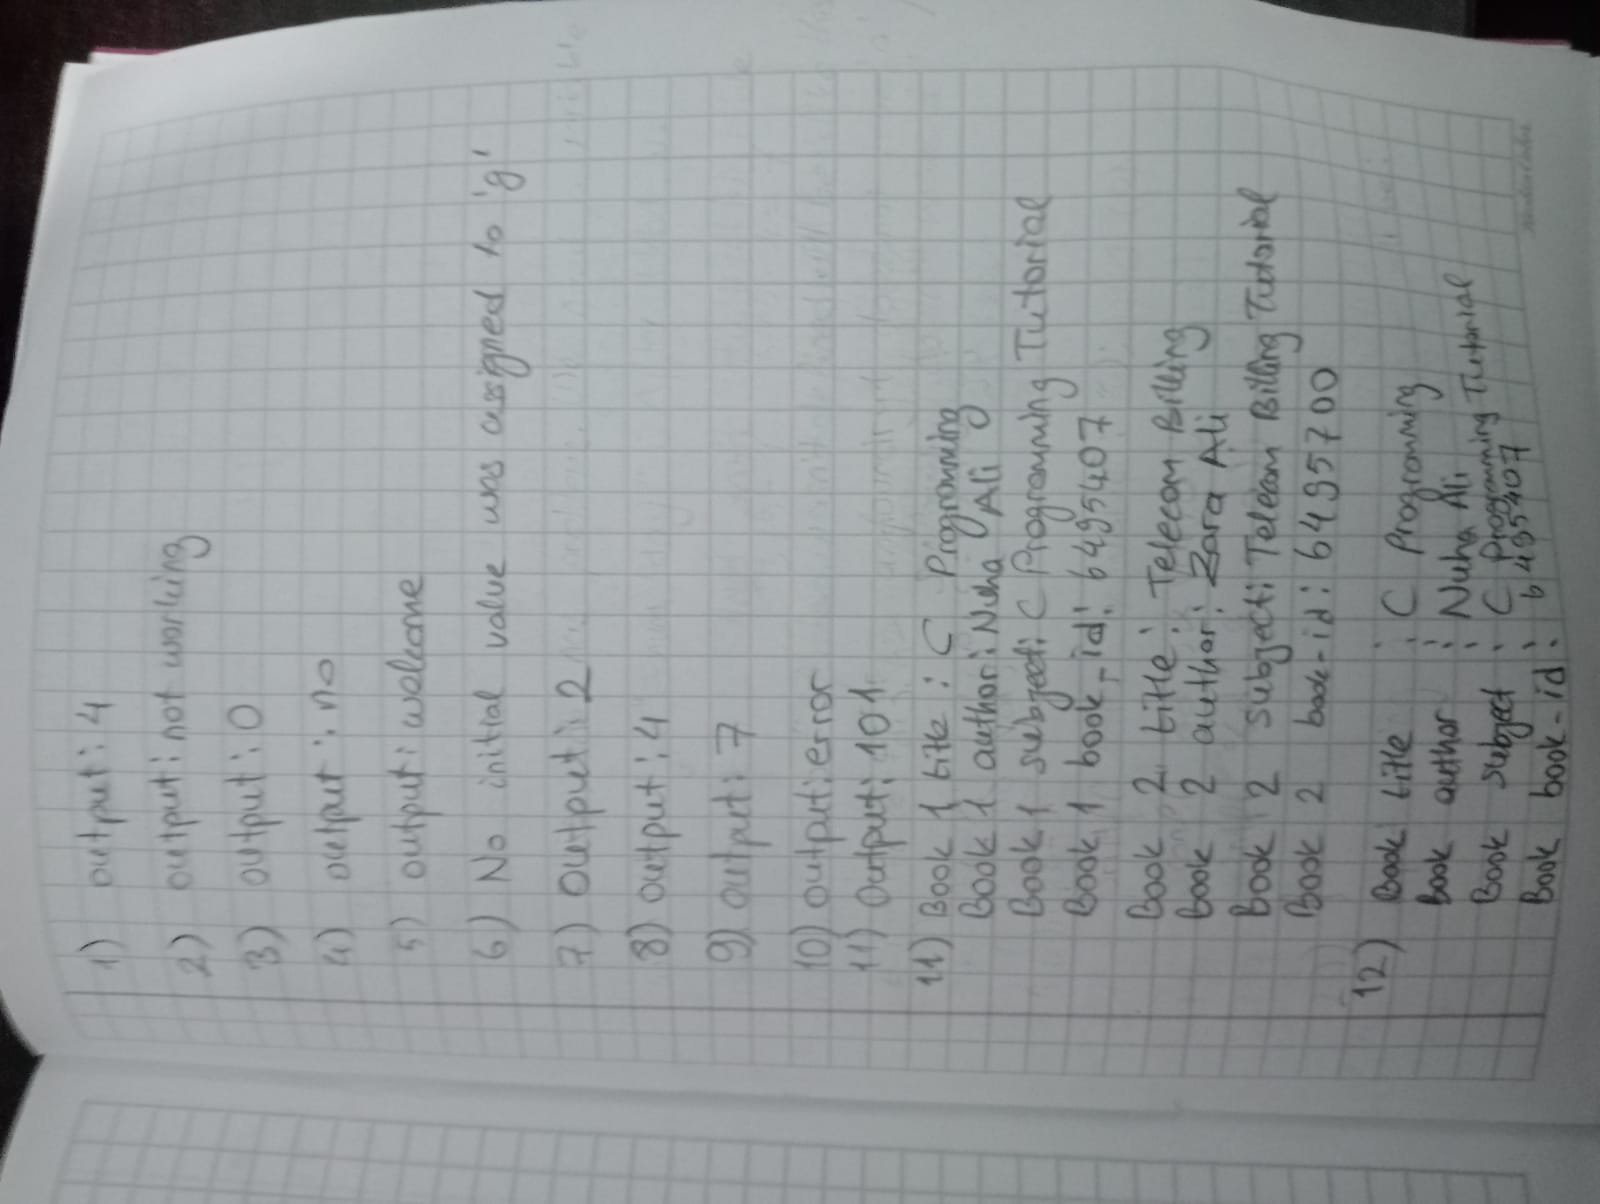 1) output: 4
2) output: not working
3) output: 0
4) output: no
5) output: welcome
6) No initial value was assigned to 'g'
7) output: 2
8) output: 4
9) output: 7
10) output: error
11) output: 101
11) Book 1 title : C Programming
Book 1 author: Nuha Ali
Book 1 subject: C Programming Tutorial
Book 1 book_id: 6495407
Book 2 title: Telecom Billing
Book 2 author: Zara Ali
Book 2 subject: Telecom Billing Tutorial
Book 2 book-id: 6495700
12) Book title : C Programming
Book author : Nuha Ali
Book subject : C Programming Tutorial
Book book-id : 6495407